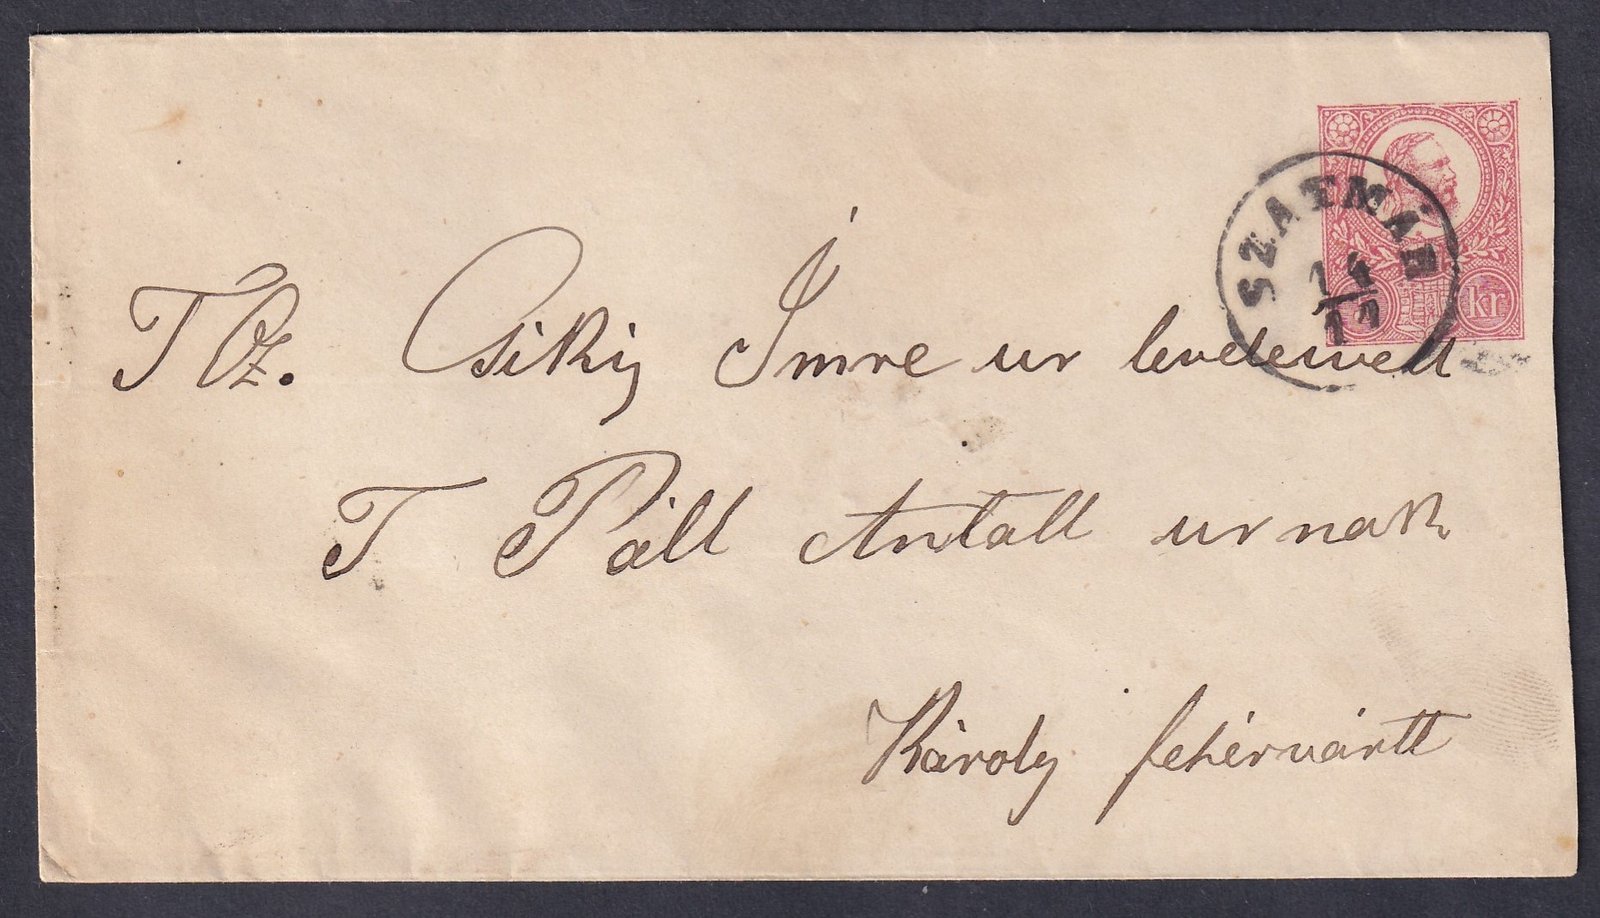 SZATMÁR
14
11
kr
T Cz. Csikij Imre ur levelewel
T Páll Antall urnak
Károly fehérvártt